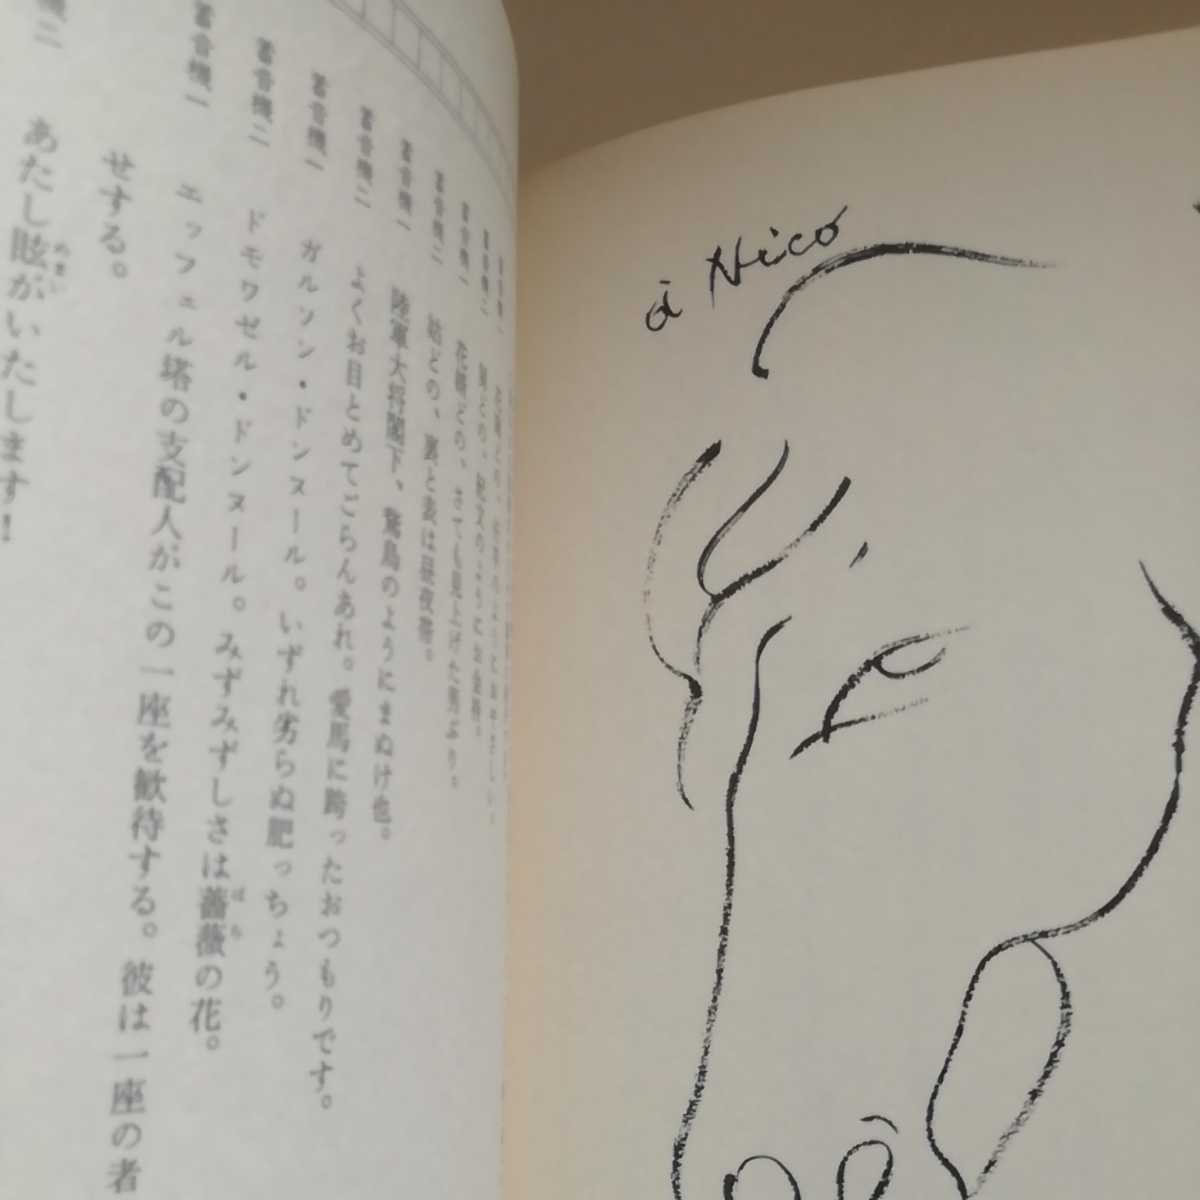 蓄音機一
蓄音機二 花婿どの、さても見上げた男ぶり。
蓄音機一 姑どの、裏と表は昼夜帯。
蓄音機二 陸軍大将閣下、鵞鳥のようにまぬけ也。
蓄音機一 よくお目とめてごらんあれ。愛馬に跨ったおつもりです。
蓄音機二 ガルソン・ドンヌール。いずれ劣らぬ肥っちょう。
蓄音機一 ドモワゼル・ドンヌール。みずみずしさは薔薇の花。
ばら
エッフェル塔の支配人がこの一座を歓待する。彼は一座の者
せする。
あたし眩がいたします!
めまい
à Nico